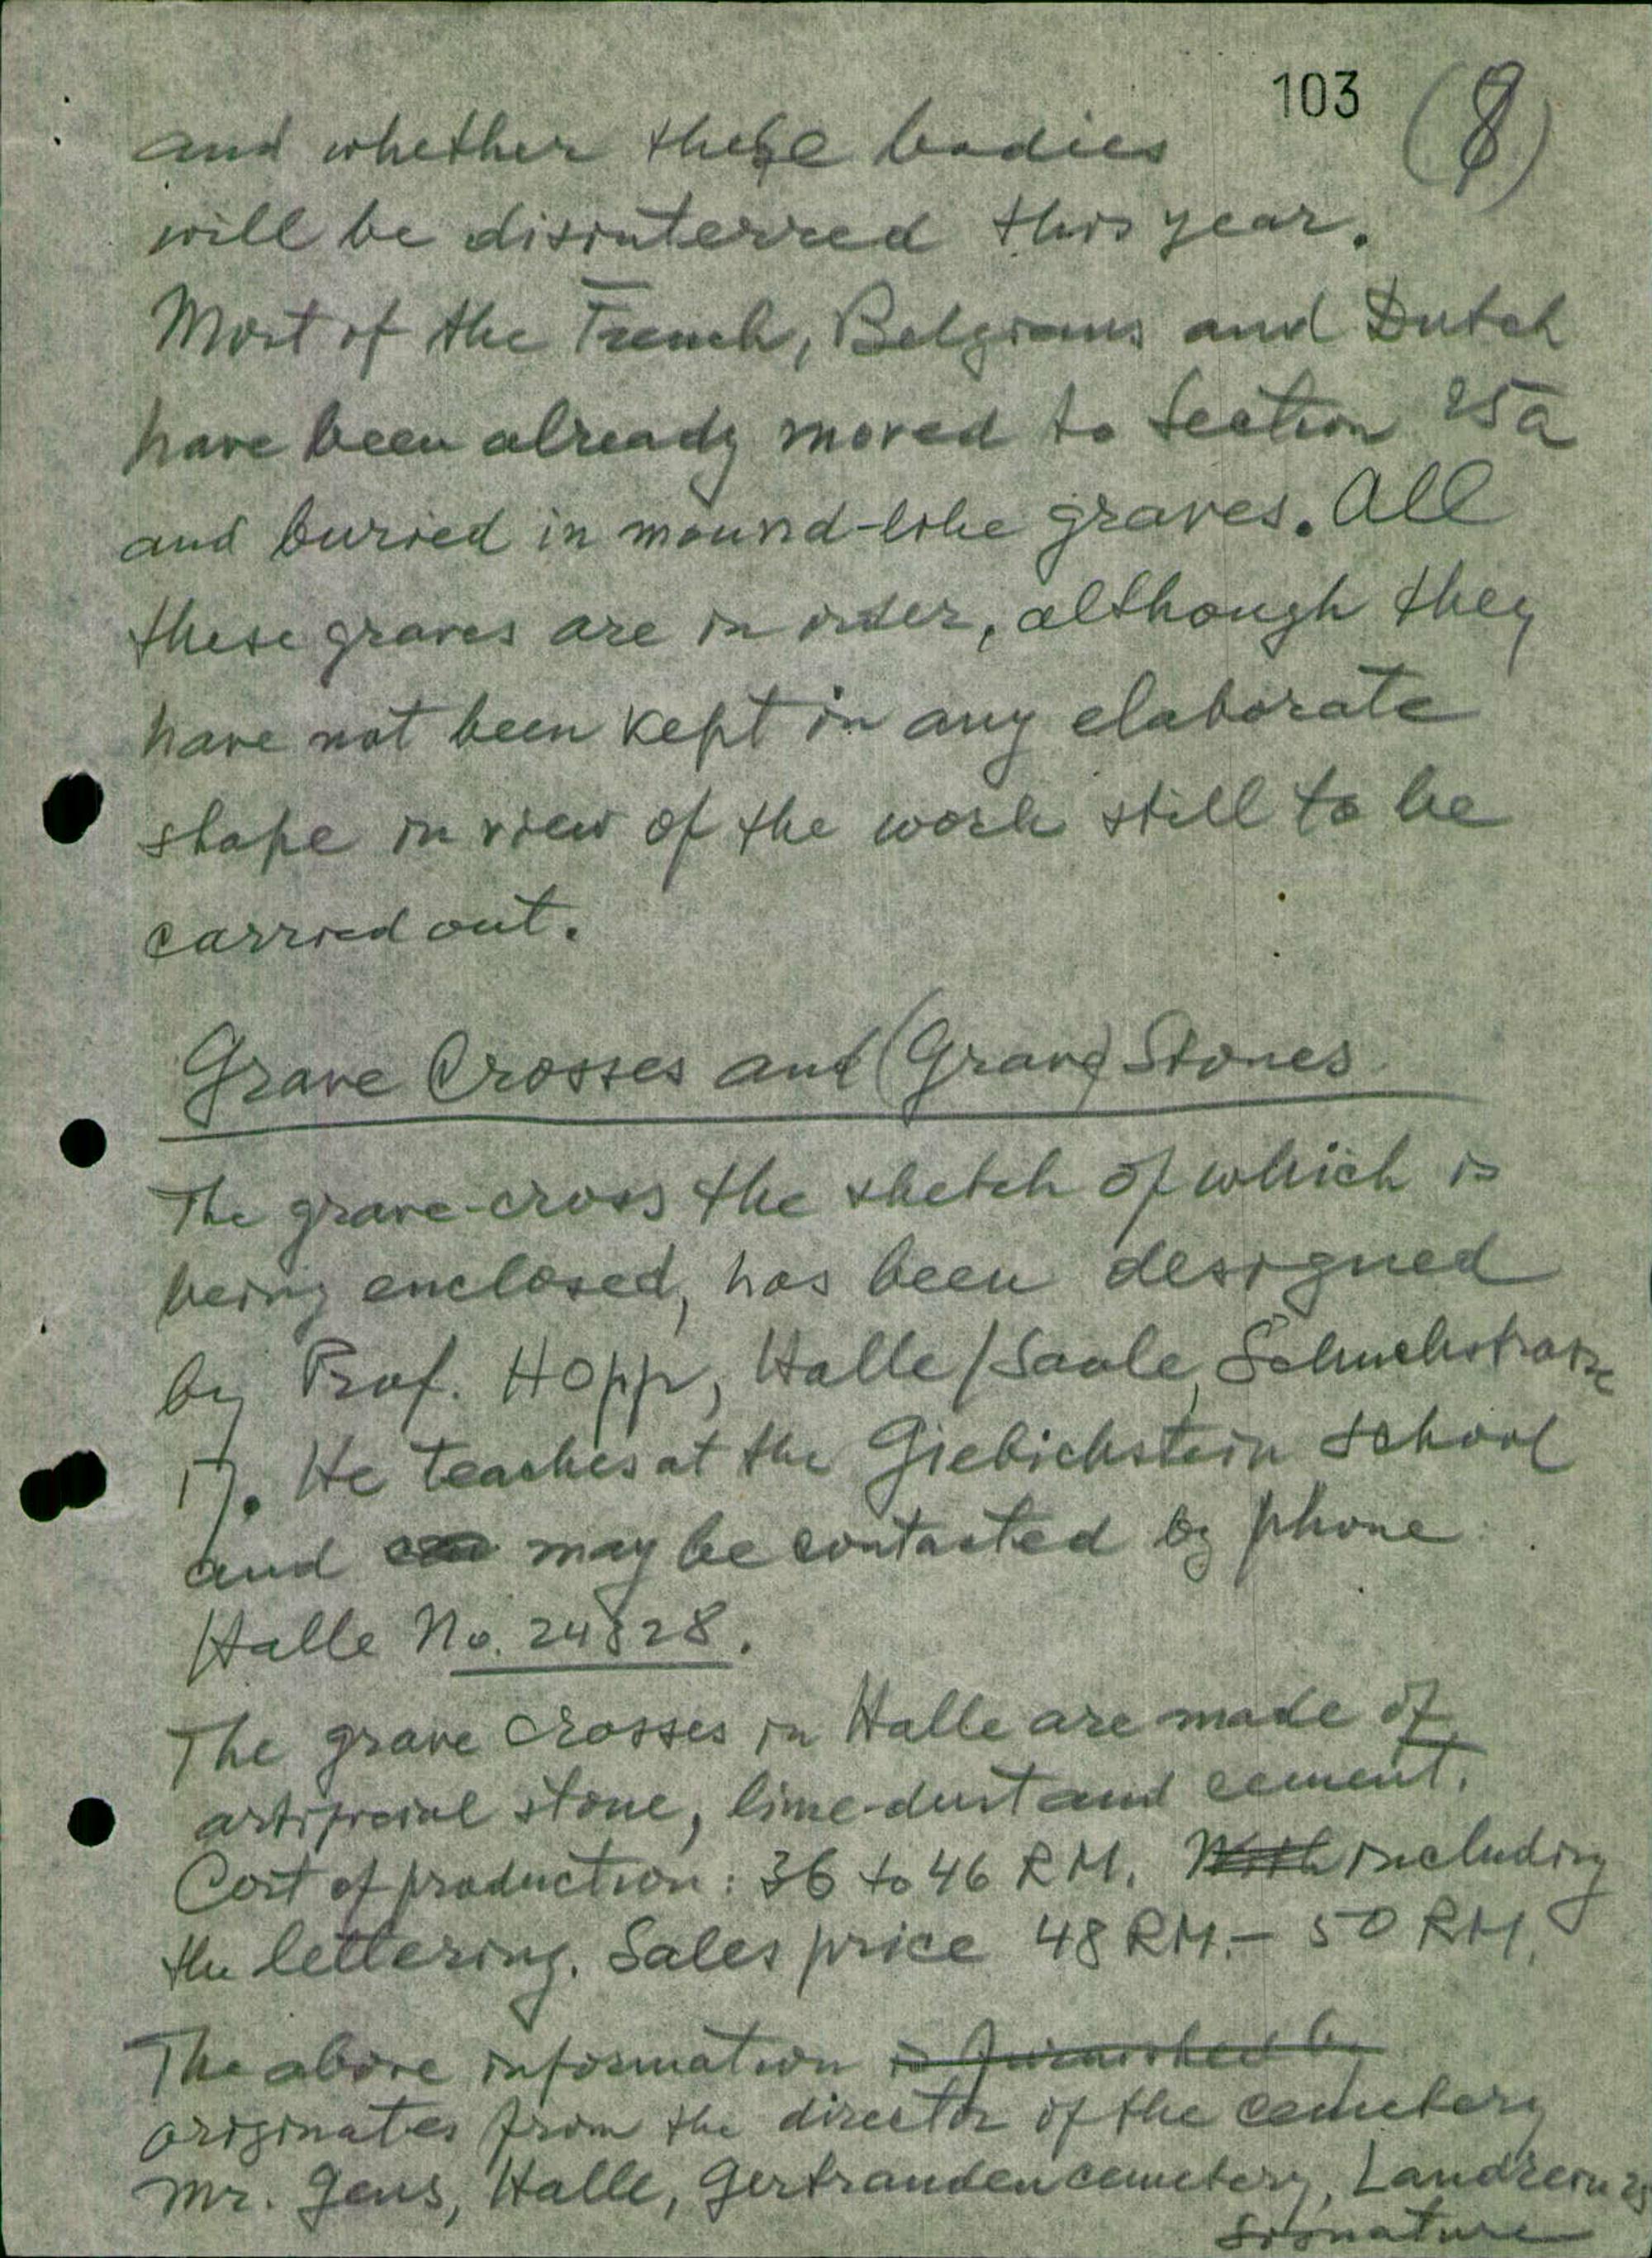 103 (8)
and whether these bodies
will be disinterred this year.
Most of the French, Belgians and Dutch
have been already moved to Section 25a
and buried in mound-like graves. All
these graves are in order, although they
have not been kept in any elaborate
shape in view of the work still to be
carried out.
Grave Crosses and (Grave) Stones
The grave-cross the sketch of which is
being enclosed, has been designed
by Prof. Hopp, Halle/Saale,
17. He teaches at the Giebichstein school
and may be contacted by phone
Halle No. 24828.
The grave crosses in Halle are made of
artificial stone, lime-dust and cement.
Cost of production: 36 to 46 RM. With including
the lettering. Sales price 48 RM.- 50 RM.
The above information is furnished by
originates from the director of the cemetery
Mr. Gens, Halle, Gertraudencemetery, Landrain 25
signature